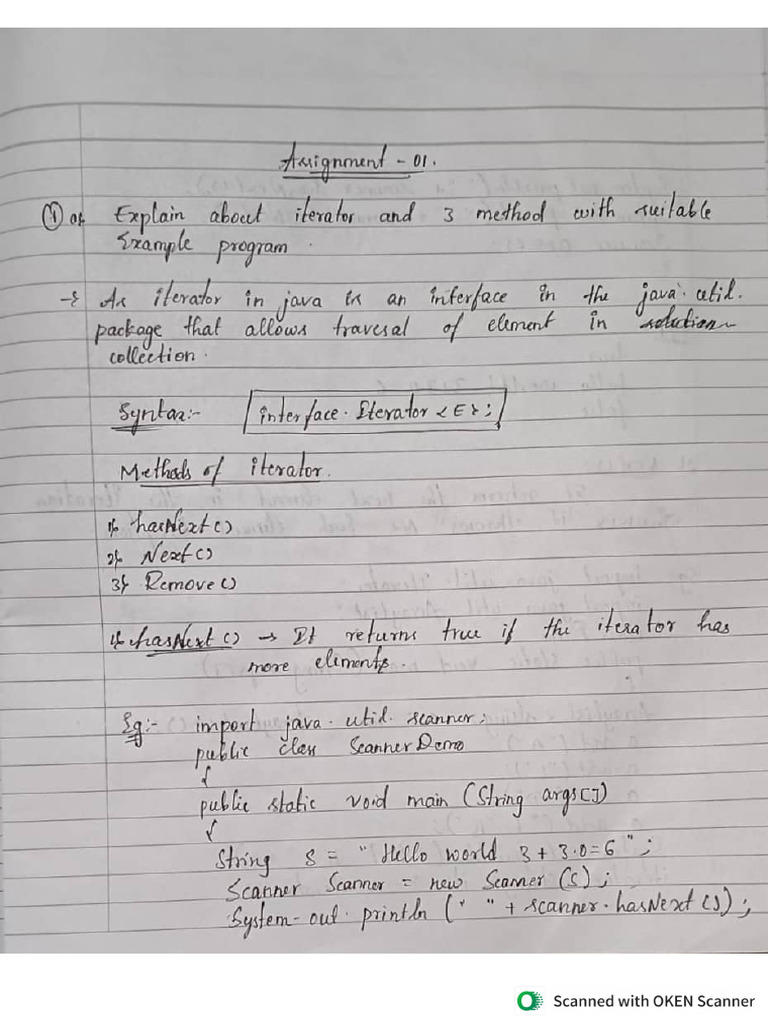 Assignment - 01.
① a} Explain about iterator and 3 method with suitable
Example program.
→ An iterator in java is an interface in the java.util.
package that allows travesal of element in solution
collection.
Syntax:- interface. Iterator <E>;
Methods of iterator.
1} hasNext()
2} Next()
3} Remove()
1} hasNext() → It returns true if the iterator has
more elements.
Eg:- import java.util.scanner;
public class ScannerDemo
{
public static void main (String args[])
{
String S = "Hello world 3+3.0=6";
Scanner Scanner = new Scanner (S);
System.out.println (" " + scanner.hasNext());
Scanned with OKEN Scanner